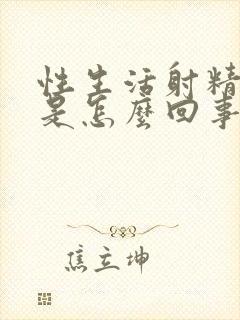 性生活射精
是怎麼回事
焦立坤